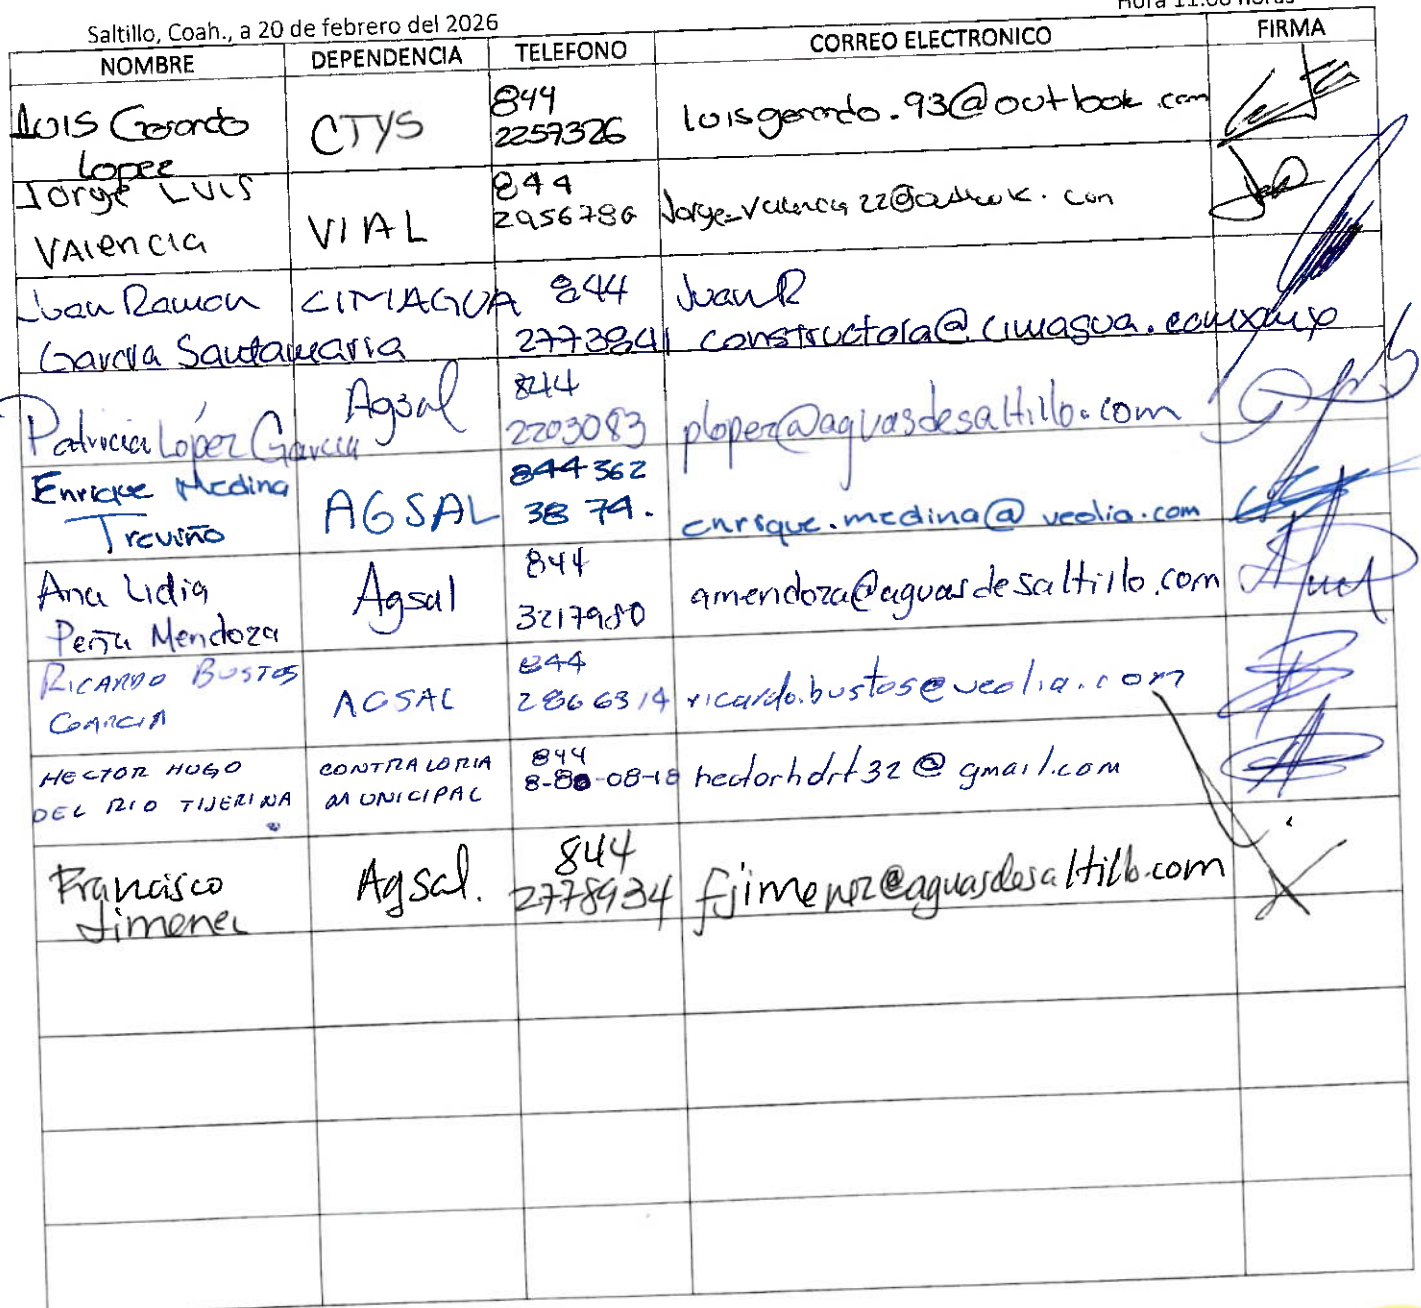 Saltillo, Coah., a 20 de febrero del 2026
Hora 11:00 horas
NOMBRE DEPENDENCIA TELEFONO CORREO ELECTRONICO FIRMA
Luis Gerardo Lopez CTYS 844 2257326 luisgerardo.93@outlook.com
Jorge Luis Valencia VIAL 844 2956786 Jorge_valencia22@outlook.com
Juan Ramon Garcia Santamaria CIMAGUA 844 2773841 JuanR constructora@cimagua.com.mx
Patricia López García Agsal 844 2203083 plopez@aguasdesaltillo.com
Enrique Medina Treviño AGSAL 844 362 38 74. enrique.medina@veolia.com
Ana Lidia Peña Mendoza Agsal 844 3217980 amendoza@aguasdesaltillo.com
RICARDO BUSTOS GARCIA AGSAL 844 2866314 ricardo.bustos@veolia.com
HECTOR HUGO DEL RIO TIJERINA CONTRALORIA MUNICIPAL 844 8-80-08-18 hectorhdrt32@gmail.com
Francisco Jimenez Agsal. 844 2778934 fjimenez@aguasdesaltillo.com